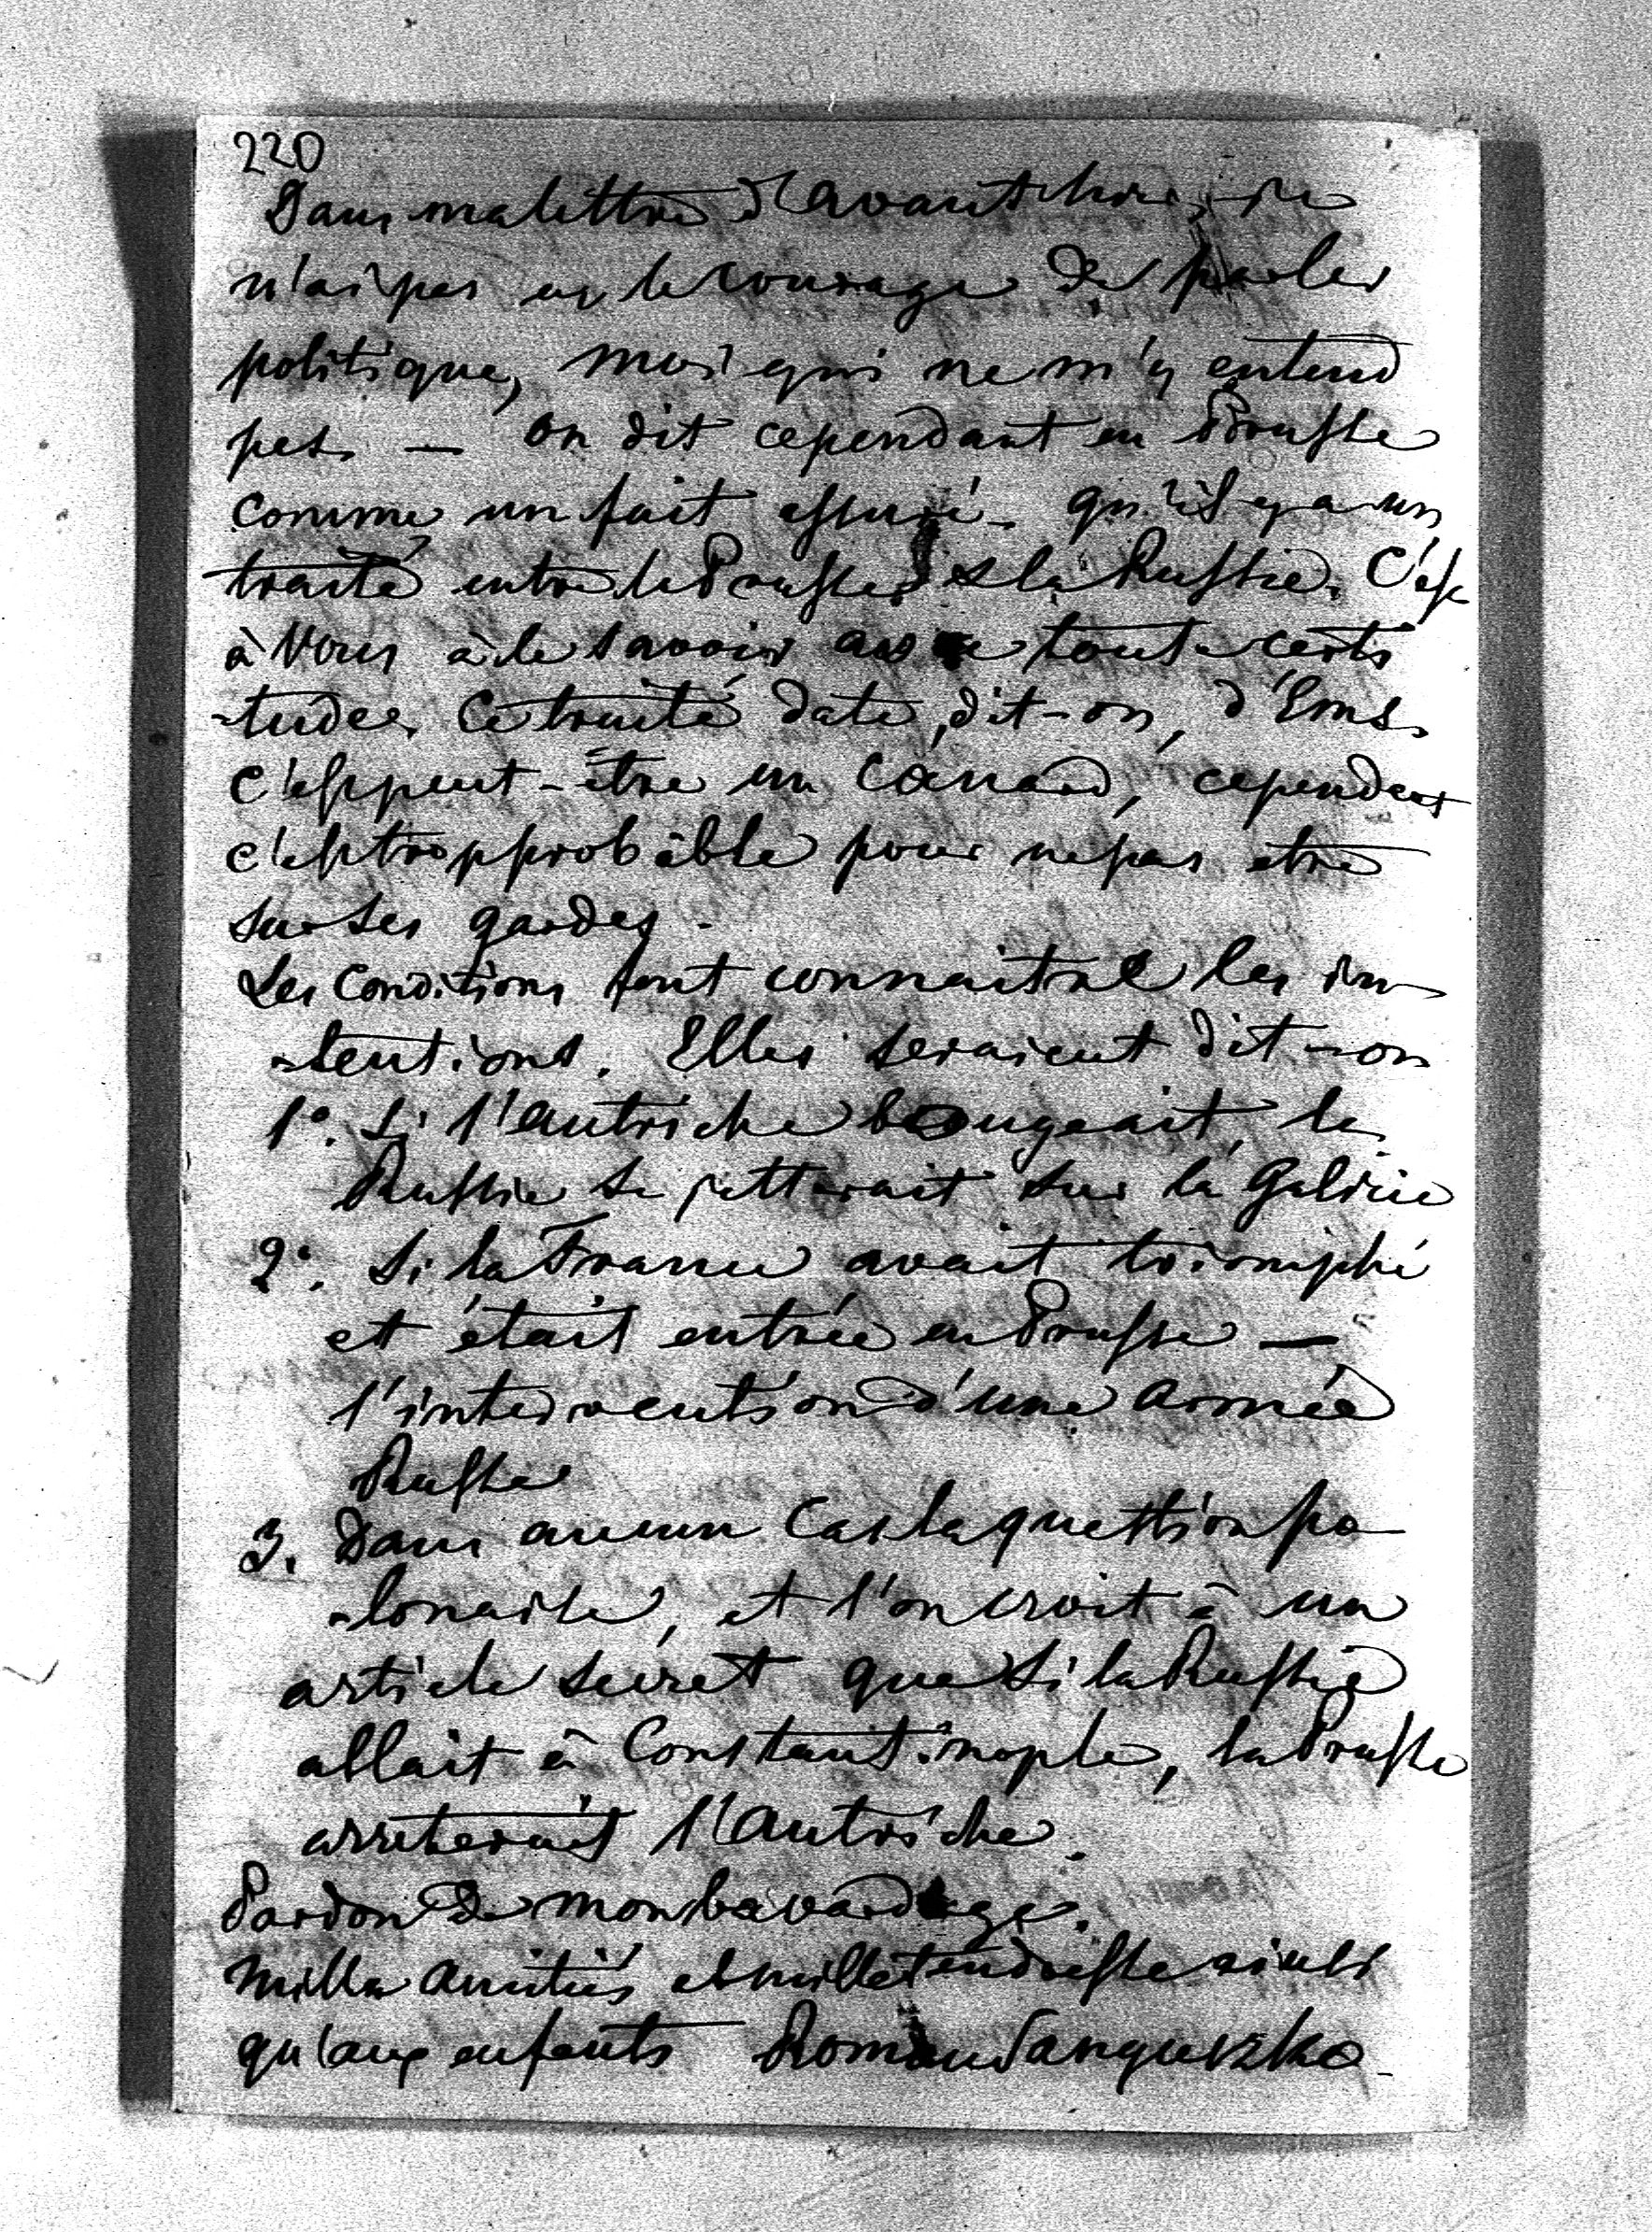 220
Dans ma lettre d'avant hier, je
n'ai pas eu le courage de parler
politique, moi qui ne m'y entend
pas. — On dit cependant en Prusse
comme un fait assuré - qu'il y a un
traité entre la Prusse & la Russie. C'est
à Vous à le savoir avec toute certi
-tude. Ce traité date, dit-on, d'Ems.
c'est peut-être un canard, cependant
c'est trop probable pour ne pas être
sur ses gardes.
Les conditions font connaitre les in
-tentions. Elles seraient dit-on
1°. Si l'Autriche bougeait, la
Russie se jetterait sur la Galicie
2°. Si la France avait triomphé
et était entrée en Prusse —
l'intervention d'une armée
Russe
3. Dans aucun cas la question po
-lonaise, et l'on croit à un
article secret que si la Russie
allait à Constantinople, la Prusse
arrêterait l'Autriche.
Pardon de mon bavardage.
Mille amitiés et mille tendresse ainsi
qu'aux enfants Roman Sanguszko